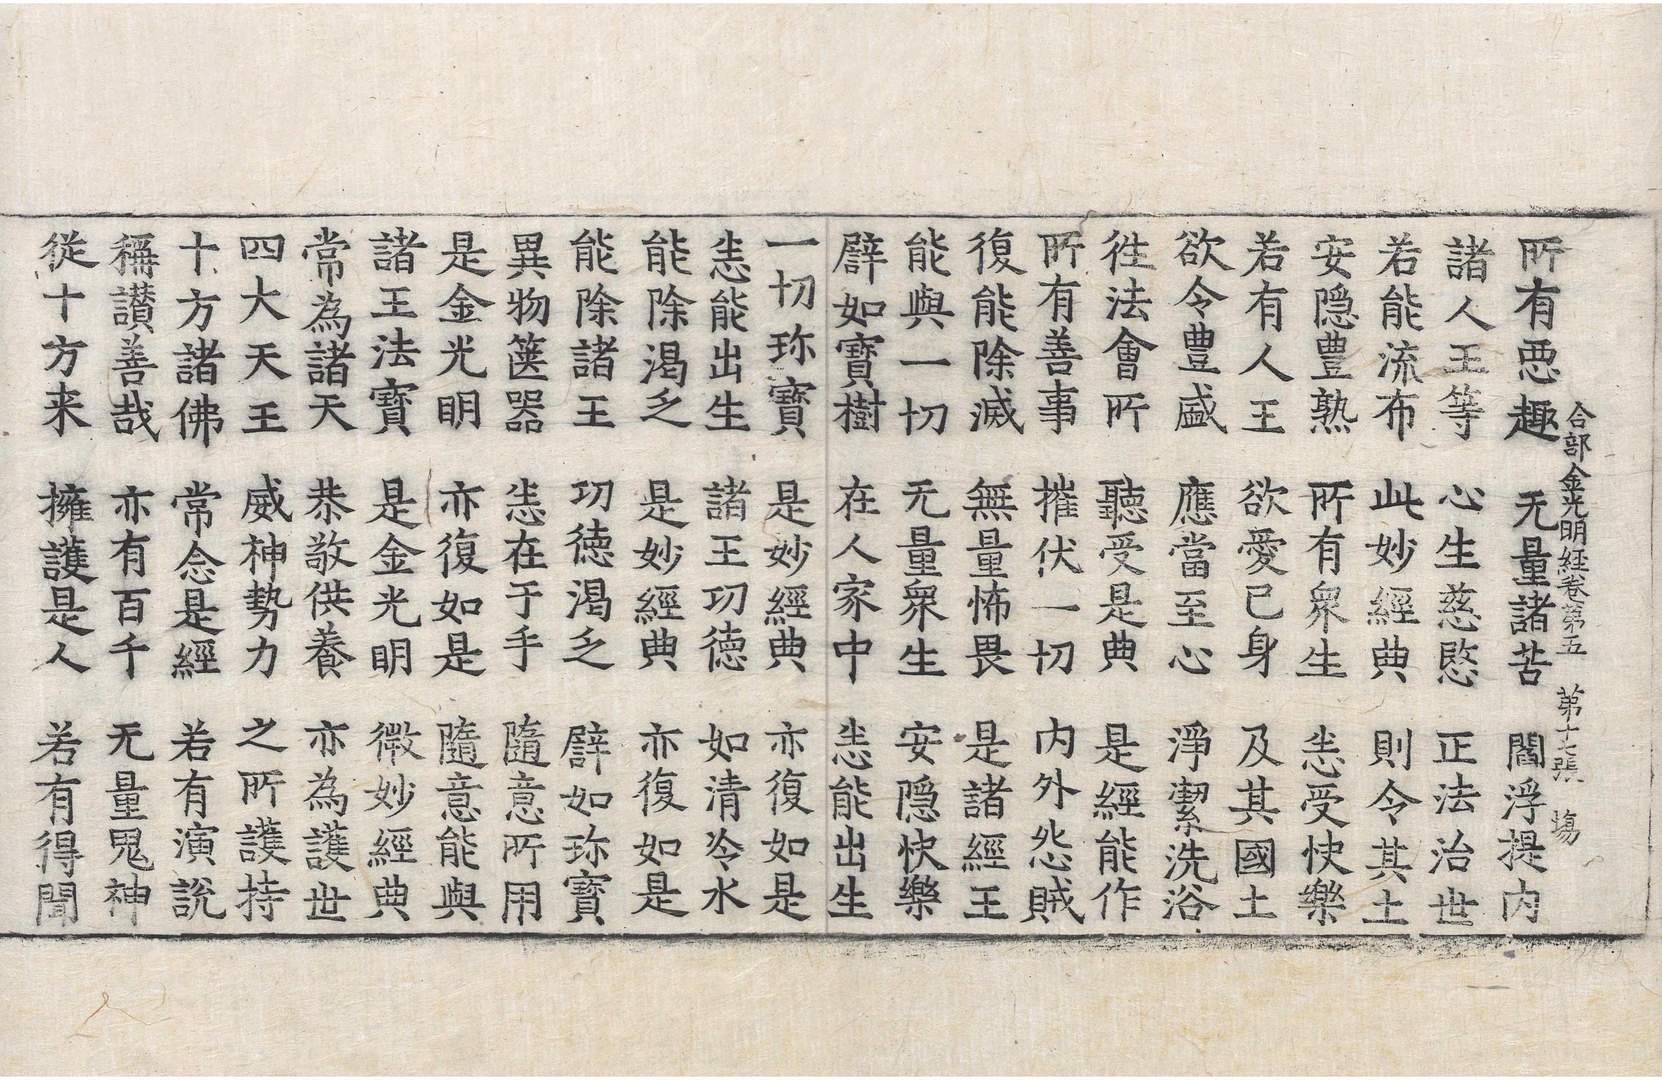 合部金光明經卷第五 第十七張 塲
所有惡趣 无量諸苦 閻浮提內
諸人王等 心生慈愍 正法治世
若能流布 此妙經典 則令其土
安隱豊熟 所有衆生 悉受快樂
若有人王 欲愛己身 及其國土
欲令豊盛 應當至心 淨潔洗浴
徃法會所 聽受是典 是經能作
所有善事 摧伏一切 內外怨賊
復能除滅 無量怖畏 是諸經王
能與一切 无量衆生 安隱快樂
辟如寶樹 在人家中 悉能出生
一切珎寶 是妙經典 亦復如是
悉能出生 諸王功德 如清冷水
能除渴乏 是妙經典 亦復如是
能除諸王 功德渴乏 辟如珎寶
異物篋器 悉在于手 隨意所用
是金光明 亦復如是 隨意能與
諸王法寶 是金光明 微妙經典
常為諸天 恭敬供養 亦為護世
四大天王 威神勢力 之所護持
十方諸佛 常念是經 若有演說
稱讃善哉 亦有百千 无量鬼神
從十方来 擁護是人 若有得聞